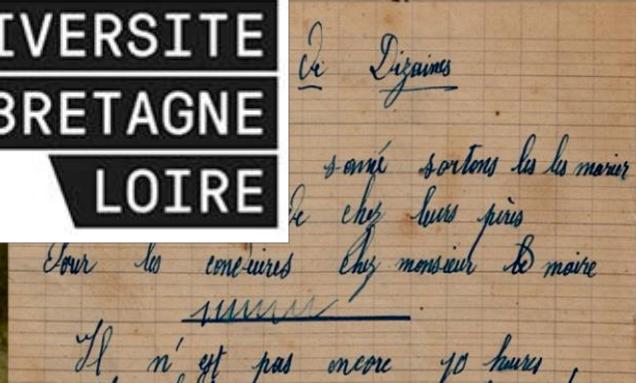 IVERSITE
BRETAGNE
LOIRE
de Dizaines
samé sortons les les marier
de chez leurs pères
Pour les conduires chez monsieur le maire
Il n'est pas encore 10 heures